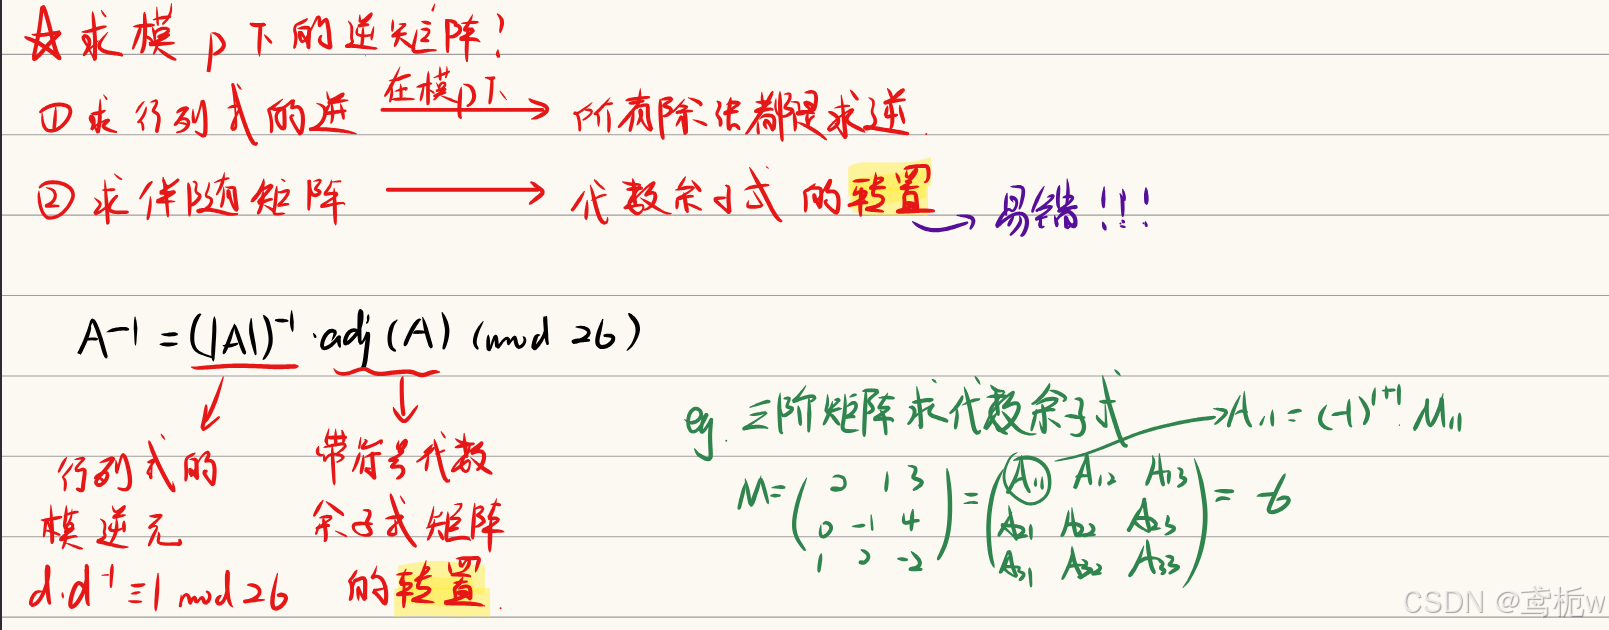 ☆求模 p 下的逆矩阵?
①求行列式的逆 在模p下→ 所有除法都是求逆.
②求伴随矩阵 → 代数余子式的转置 → 易错!!!
A⁻¹ = (|A|)⁻¹·adj(A) (mod 26)
行列式的
模逆元
d·d⁻¹≡1 mod 26
带符号代数
余子式矩阵
的转置.
eg. 三阶矩阵求代数余子式 → A₁₁ = (-1)¹⁺¹·M₁₁
M= ( 2 1 3 = ( A₁₁ A₁₂ A₁₃ ) = -6
0 -1 4 A₂₁ A₂₂ A₂₃
1 2 -2 ) A₃₁ A₃₂ A₃₃
CSDN @鸢栀w